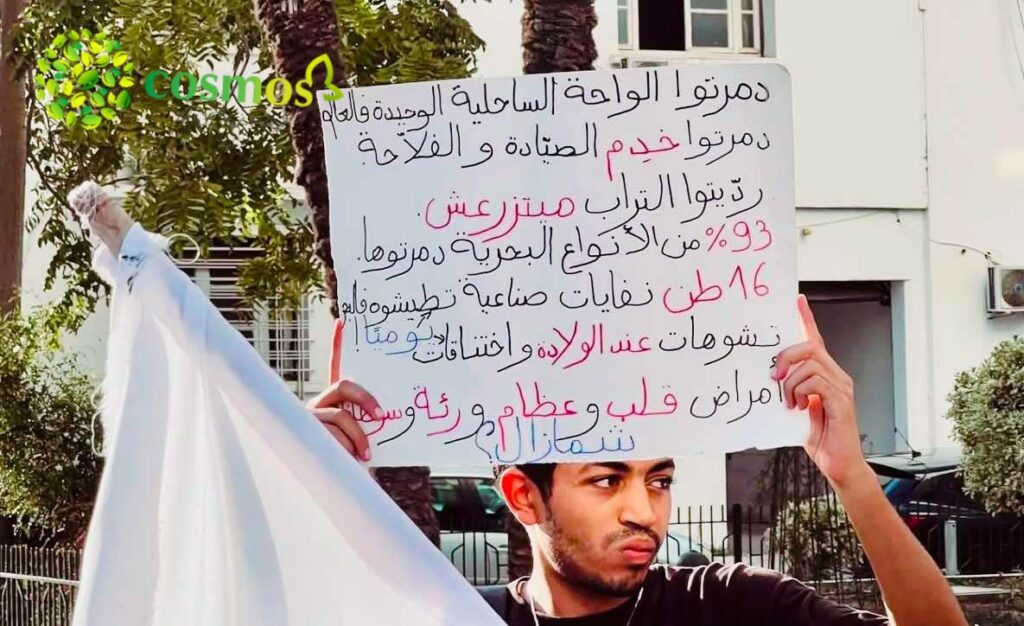 cosmos
دمرتوا الواحة الساحلية الوحيدة فالعا
دمرتوا خدم الصيّادة و الفلاحة
ردّيتوا التراب ميتزرعش.
93% من الأنواع البحرية دمرتوها.
16 طن نفايات صناعية تطيشوه
يوميّا!
تشوهات عند الولادة و اختناقات
أمراض قلب و عظام و رئة و
شمازال؟